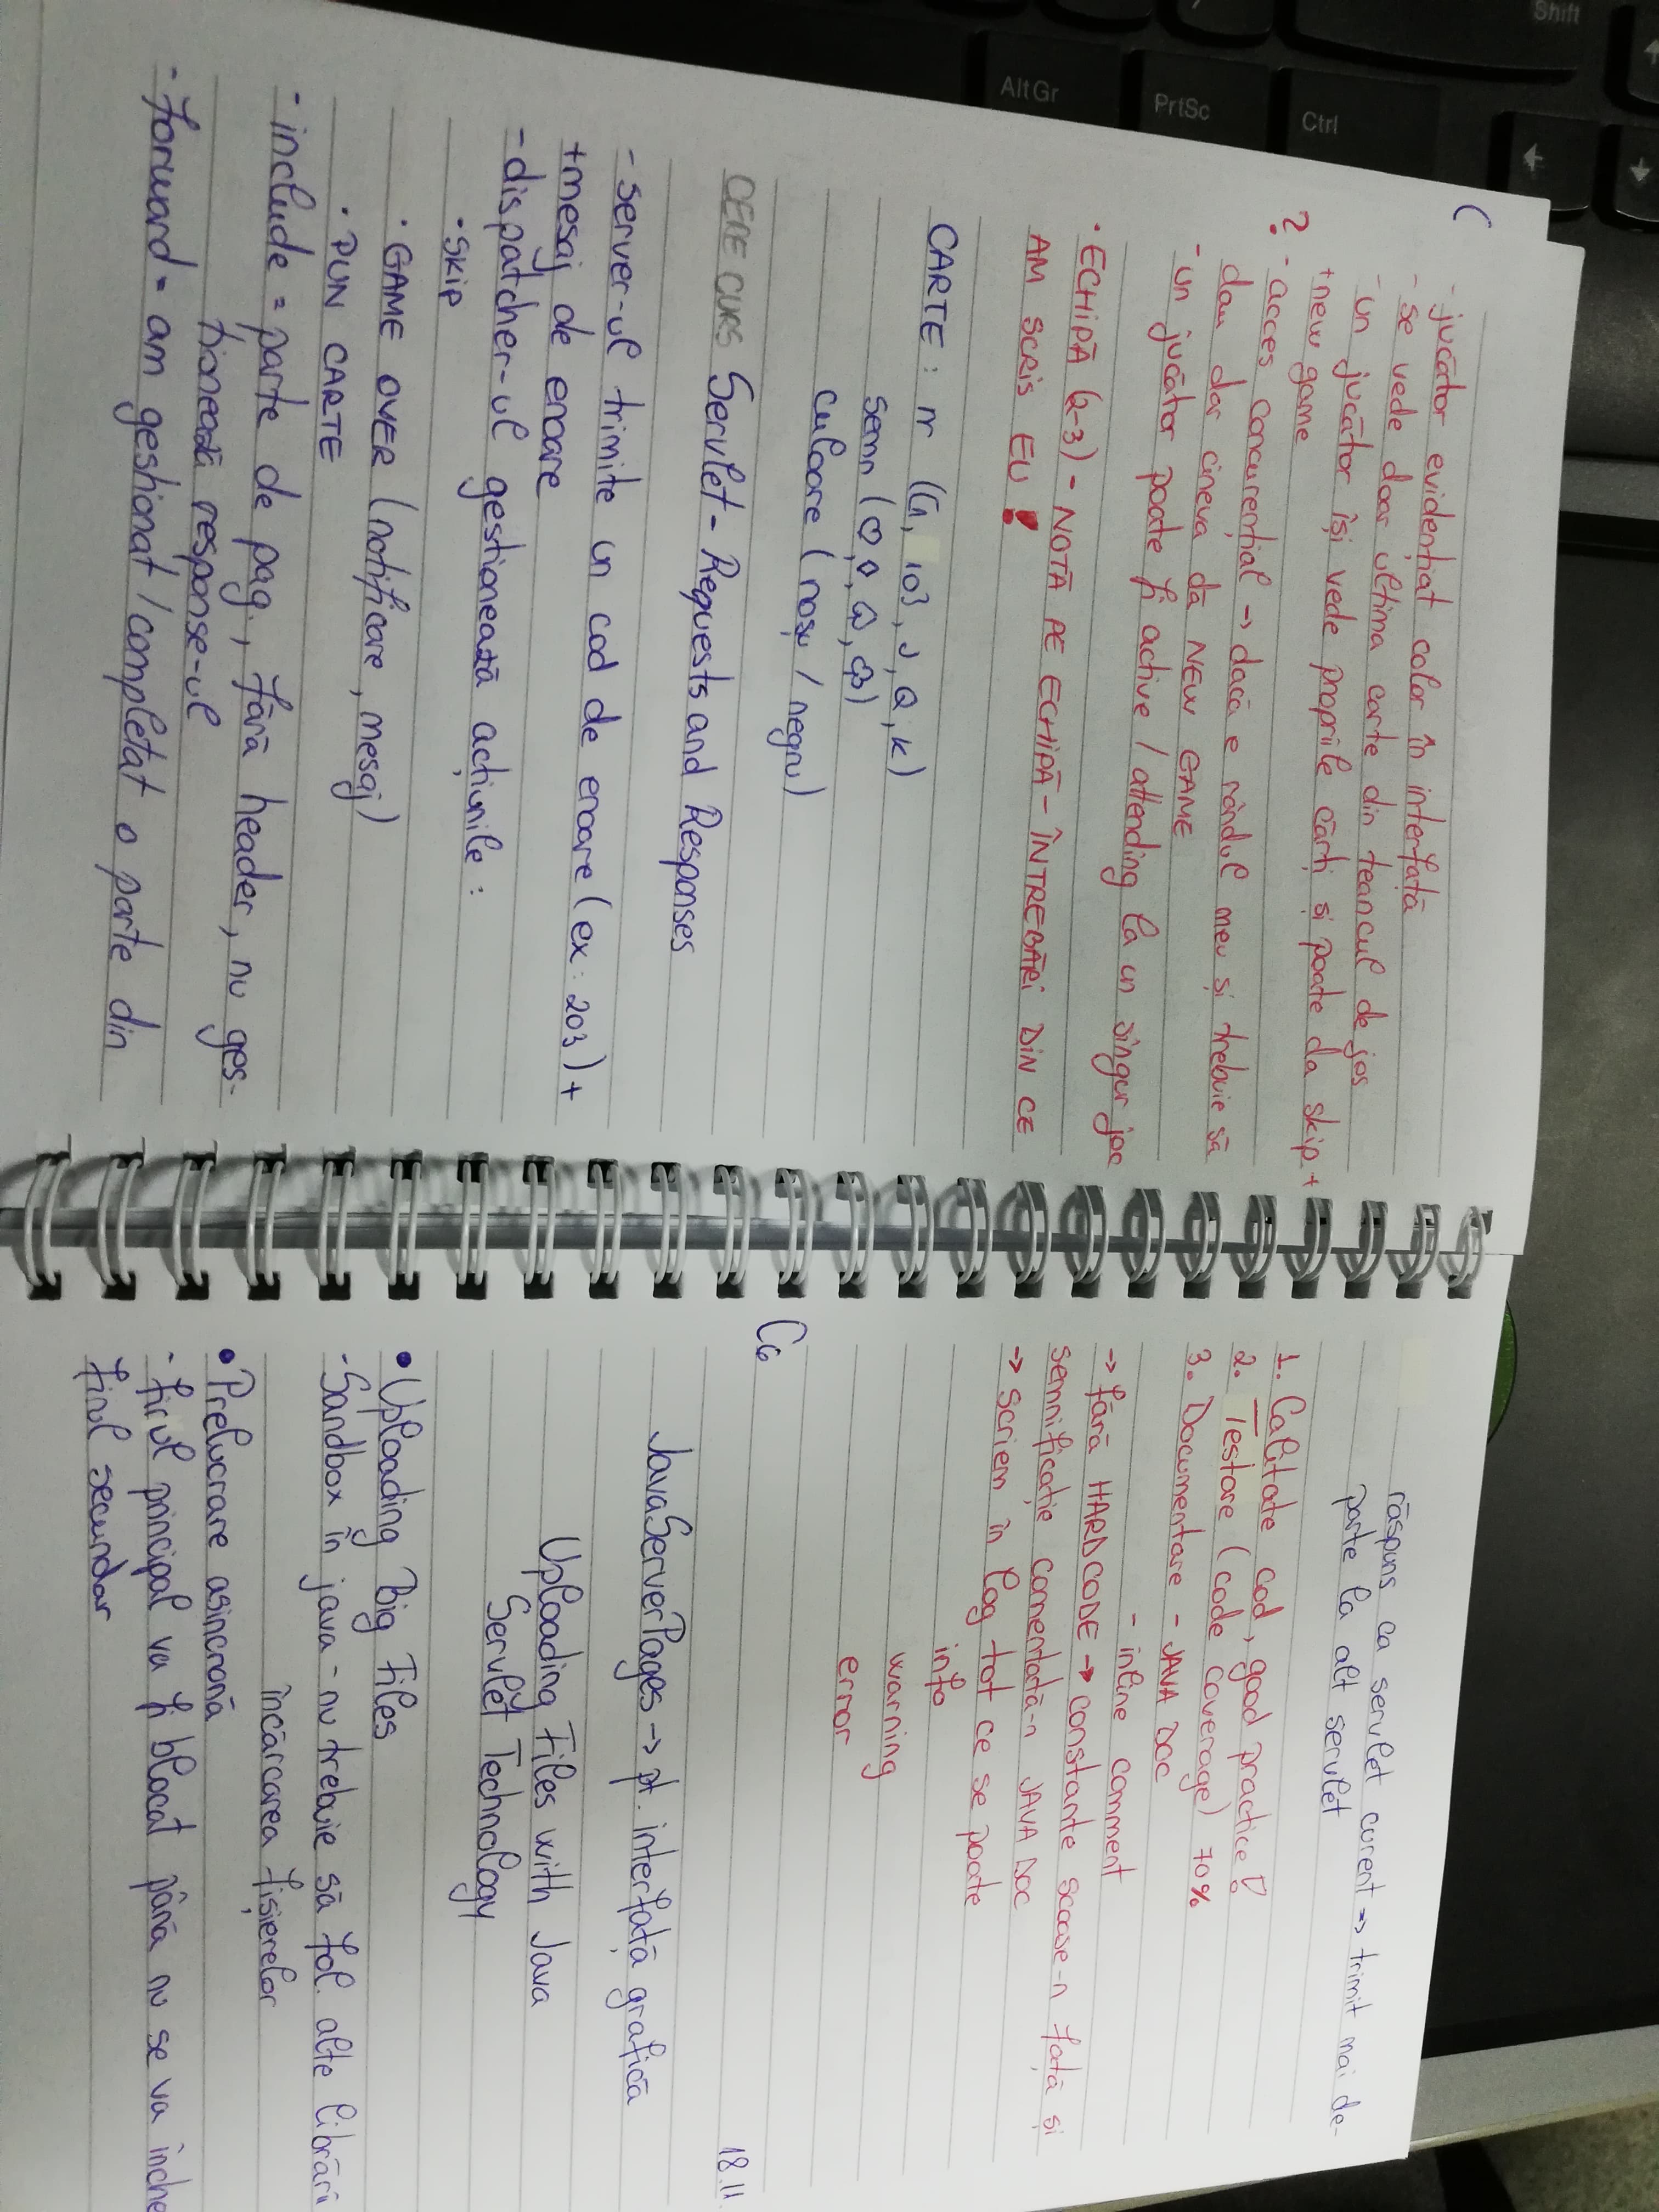 C
- jucător evidențiat color în interfață
- se vede doar ultima carte din teancul de jos
- un jucător își vede propriile cărți și poate da skip +
+ new game
? - acces concurențial → dacă e rândul meu și trebuie să
dau dar cineva dă NEW GAME
- un jucător poate fi active / attending la un singur joc
• ECHIPĂ (2-3) - NOTĂ PE ECHIPĂ - ÎNTREBĂRI DIN CE
AM SCRIS EU !
CARTE: nr 10}, J, Q, K)
semn (♡, ◊, ♤, ♧)
culoare (roșu / negru)
CERE CURS Servlet - Requests and Responses
- server-ul trimite un cod de eroare (ex: 203) +
+ mesaj de eroare
- dispatcher-ul gestionează acțiunile:
• SKIP
• GAME OVER (notificare, mesaj)
• PUN CARTE
- include = parte de pag., fără header, nu ges-
tionează response-ul
- forward = am gestionat / completat o parte din
răspuns ca servlet curent => trimit mai de-
parte la alt servlet
1. Calitate cod, good practice!
2. Testare (code coverage) 70%
3. Documentare - JAVA DOC
- inline comment
→ fără HARDCODE → constante scoase-n față și
semnificație comentată-n JAVA DOC
→ scriem în log tot ce se poate
info
warning
error
C6
18.11
JavaServerPages → pt. interfață grafică
Uploading Files with Java
Servlet Technology
• Uploading Big Files
- Sandbox în java - nu trebuie să fol. alte librării
încărcarea fișierelor
• Prelucrare asincronă
- firul principal va fi blocat până nu se va înche
firul secundar